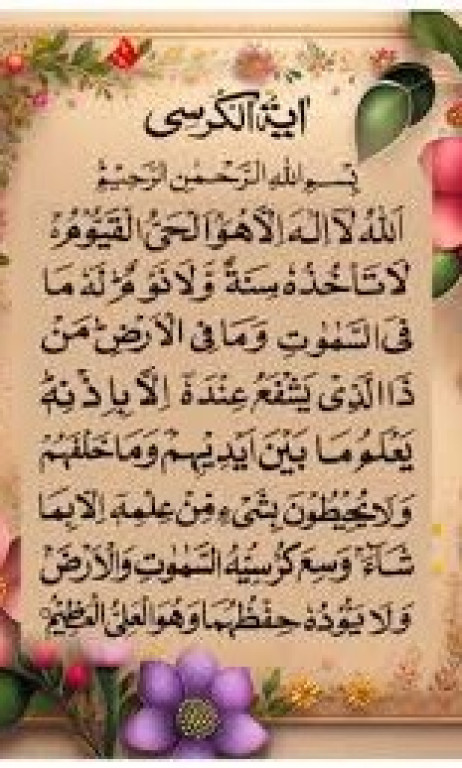 اٰیة الكرسی
بِسْمِ اللهِ الرَّحْمٰنِ الرَّحِیْمِ
اَللهُ لَاۤ اِلٰهَ اِلَّا هُوَ الْحَیُّ الْقَیُّوْمُ ۚ
لَا تَاْخُذُهٗ سِنَةٌ وَّلَا نَوْمٌ ؕ لَهٗ مَا
فِی السَّمٰوٰتِ وَمَا فِی الْاَرْضِ ؕ مَنْ
ذَا الَّذِیْ یَشْفَعُ عِنْدَهٗۤ اِلَّا بِاِذْنِهٖ ؕ
یَعْلَمُ مَا بَیْنَ اَیْدِیْهِمْ وَمَا خَلْفَهُمْ ۚ
وَلَا یُحِیْطُوْنَ بِشَیْءٍ مِّنْ عِلْمِهٖۤ اِلَّا بِمَا
شَآءَ ۚ وَسِعَ كُرْسِیُّهُ السَّمٰوٰتِ وَالْاَرْضَ ۚ
وَلَا یَـُٔوْدُهٗ حِفْظُهُمَا ۚ وَهُوَ الْعَلِیُّ الْعَظِیْمُ